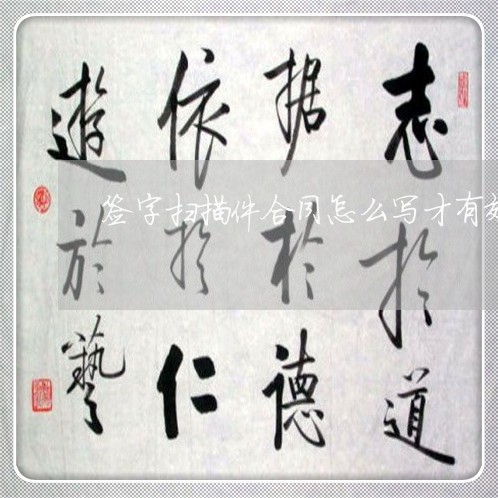 志於道
据於德
依於仁
遊於藝
签字扫描件合同怎么写才有